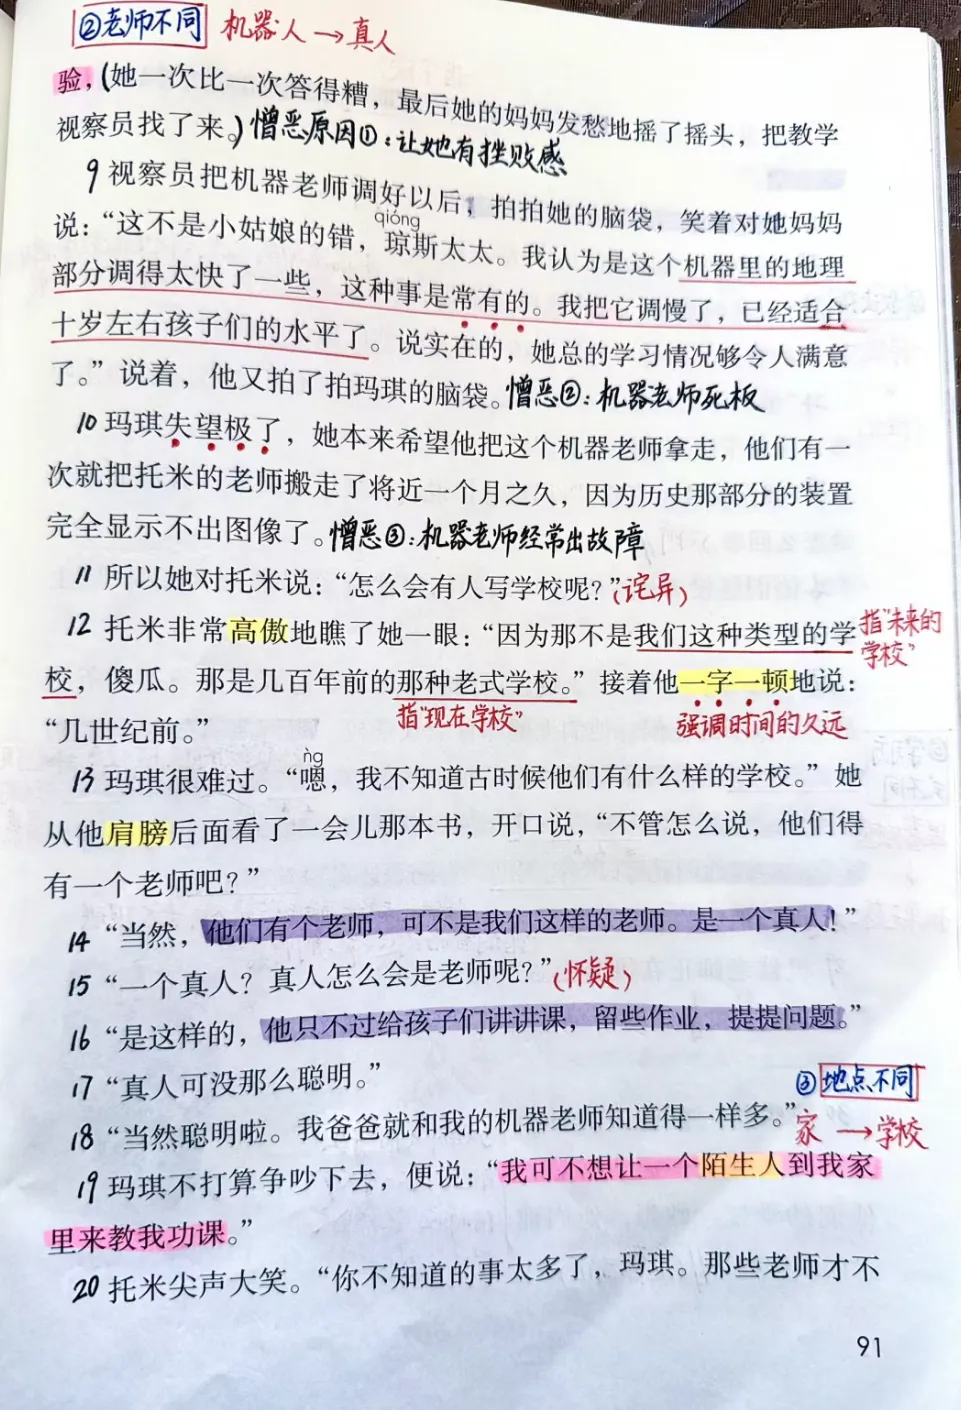 ②老师不同 机器人→真人
验，(她一次比一次答得糟，最后她的妈妈发愁地摇了摇头，把教学
视察员找了来。) 憎恶原因①：让她有挫败感
9 视察员把机器老师调好以后，拍拍她的脑袋，笑着对她妈妈
qióng
说：“这不是小姑娘的错，琼斯太太。我认为是这个机器里的地理
部分调得太快了一些，这种事是常有的。我把它调慢了，已经适合
十岁左右孩子们的水平了。说实在的，她总的学习情况够令人满意
了。”说着，他又拍了拍玛琪的脑袋。憎恶②：机器老师死板
10 玛琪失望极了，她本来希望他把这个机器老师拿走，他们有一
次就把托米的老师搬走了将近一个月之久，因为历史那部分的装置
完全显示不出图像了。憎恶③：机器老师经常出故障
11 所以她对托米说：“怎么会有人写学校呢？”(诧异)
12 托米非常高傲地瞧了她一眼：“因为那不是我们这种类型的学 指“未来的
学校”
校，傻瓜。那是几百年前的那种老式学校。”接着他一字一顿地说：
指“现在学校” 强调时间的久远
“几世纪前。”
ǹg
13 玛琪很难过。“嗯，我不知道古时候他们有什么样的学校。”她
从他肩膀后面看了一会儿那本书，开口说，“不管怎么说，他们得
有一个老师吧？”
14 “当然，他们有个老师，可不是我们这样的老师。是一个真人！”
15 “一个真人？真人怎么会是老师呢？”(怀疑)
16 “是这样的，他只不过给孩子们讲讲课，留些作业，提提问题。”
17 “真人可没那么聪明。”
③地点不同
18 “当然聪明啦。我爸爸就和我的机器老师知道得一样多。” 家→学校
19 玛琪不打算争吵下去，便说：“我可不想让一个陌生人到我家
里来教我功课。”
20 托米尖声大笑。“你不知道的事太多了，玛琪。那些老师才不
91